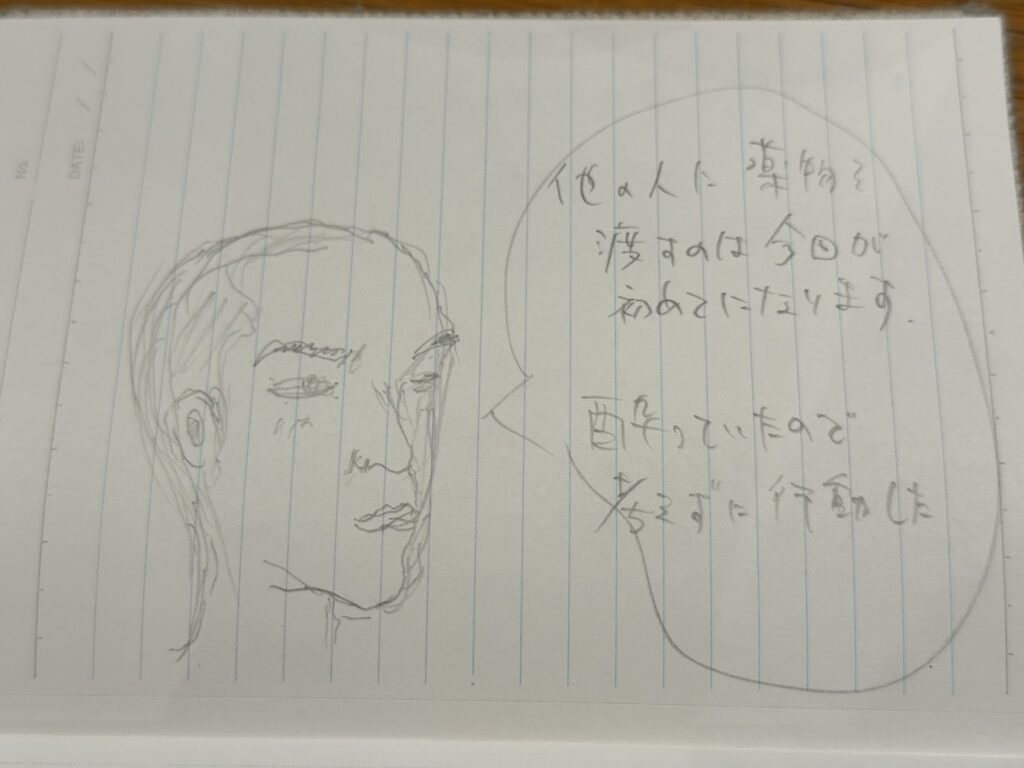 No.
DATE: / /
他の人に薬物を
渡すのは今回が
初めてになります.
酔っていたので
考えずに行動した